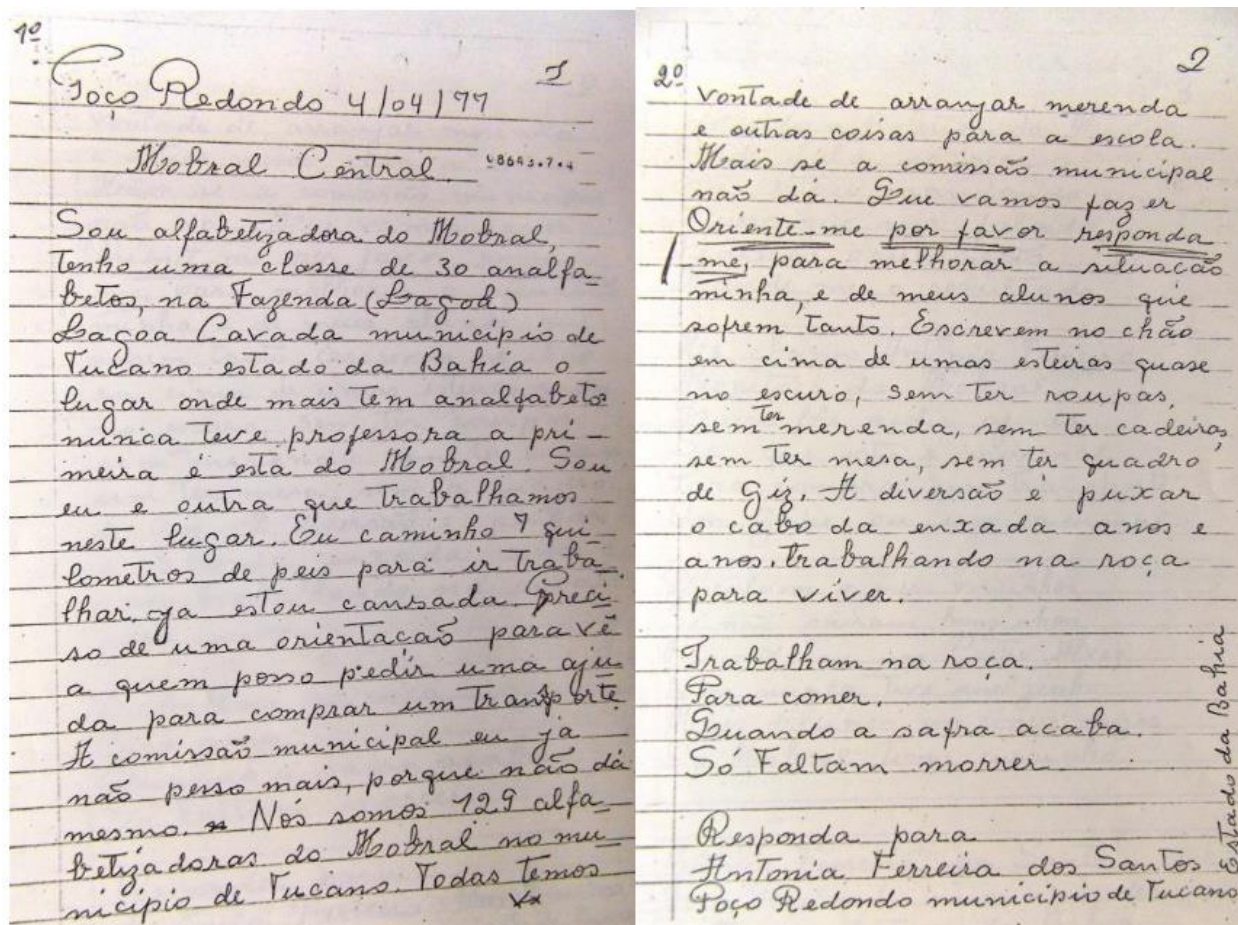 1º
1
Poço Redondo 4/04/77
Mobral Central.
Sou alfabetizadora do Mobral,
Tenho uma classe de 30 analfa-
betos, na Fazenda (Lagoa)
Lagoa Cavada município de
Tucano estado da Bahia o
lugar onde mais tem analfabetos
nunca teve professora a pri-
meira é esta do Mobral. Sou
eu e outra que trabalhamos
neste lugar. Eu caminho 7 qui-
lometros de peis para ir traba-
lhar. ja estou cansada. Preci-
so de uma orientacaõ para vê
a quem posso pedir uma aju-
da para comprar um transporte
A comissaõ municipal eu já
naõ pesso mais, porque naõ dá
mesmo. Nós somos 129 alfa-
betizadoras do Mobral no mu-
nicipio de Tucano. Todas temos
2º
2
vontade de arranjar merenda
e outras coisas para a escola.
Mais se a comissaõ municipal
naõ dá. Que vamos fazer
Oriente-me por favor responda
me, para melhorar a situacaõ
minha, e de meus alunos que
sofrem tanto. Escrevem no chaõ
em cima de umas esteiras quase
no escuro, sem ter roupas,
sem ter merenda, sem ter cadeiras,
sem ter mesa, sem ter quadro
de giz. A diversaõ é puxar
o cabo da enxada anos e
anos. trabalhando na roça
para viver.
Trabalham na roça.
Para comer.
Quando a safra acaba.
Só Faltam morrer
Responda para
Antonia Ferreira dos Santos
Poço Redondo município de Tucano
Estado da Bahia